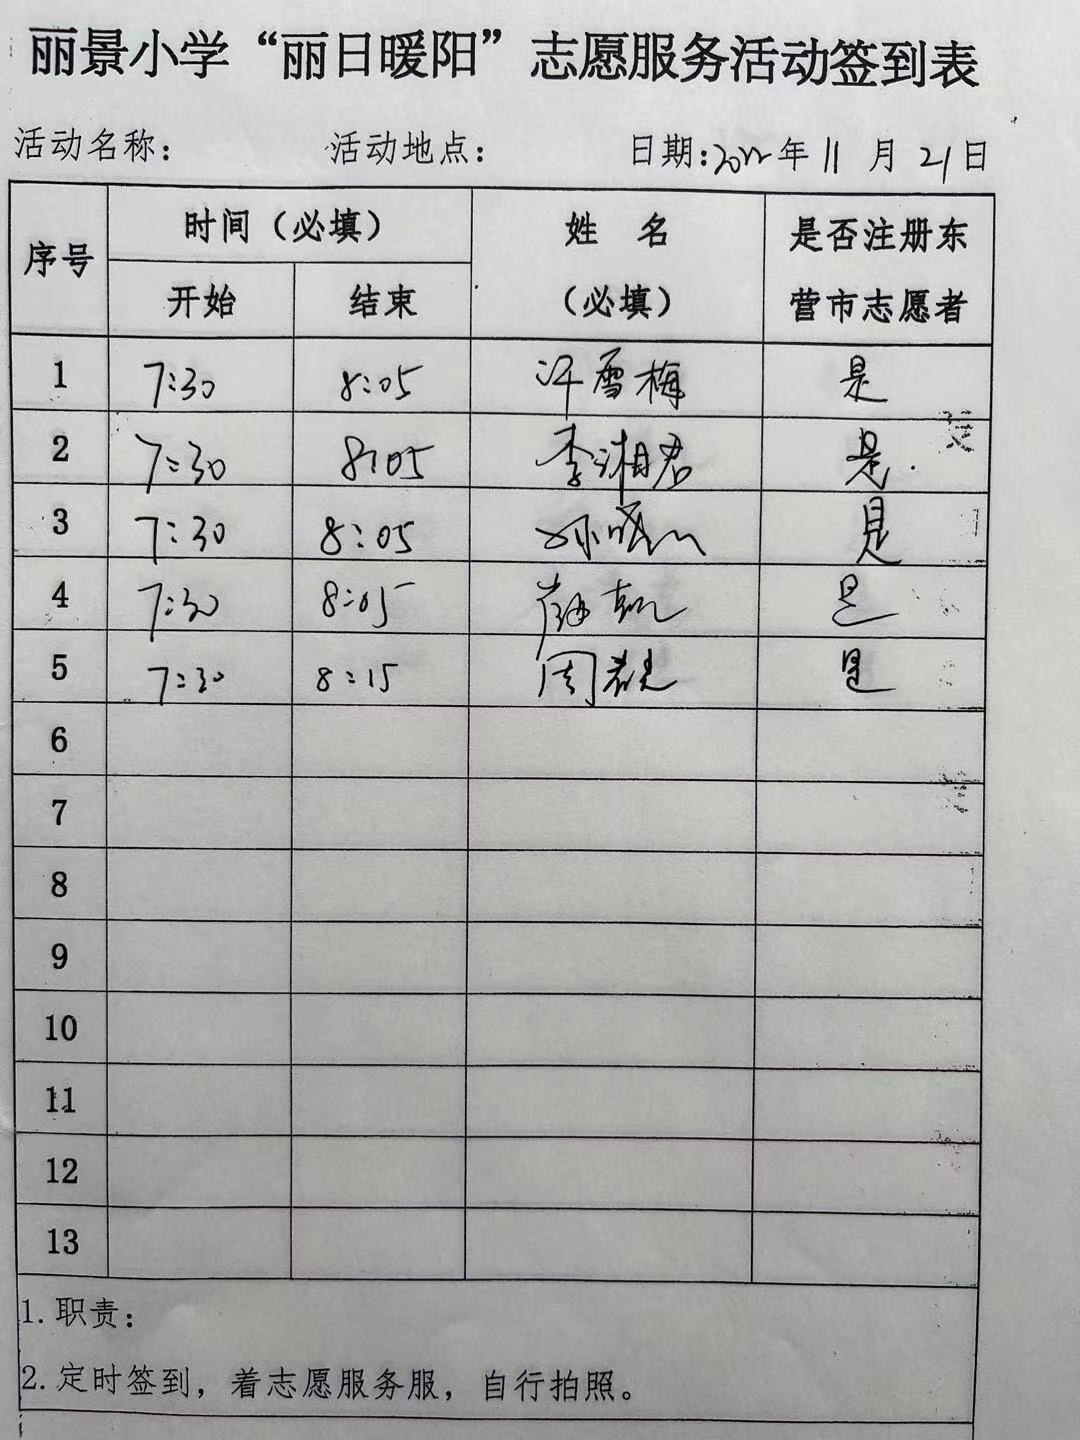 丽景小学“丽日暖阳”志愿服务活动签到表
活动名称： 活动地点： 日期:2022年11月21日
序号 时间（必填） 姓 名（必填） 是否注册东营市志愿者
开始 结束
1 7:30 8:05 许雪梅 是
2 7:30 8:05 李湘君 是.
3 7:30 8:05 是
4 7:30 8:05 是
5 7:30 8:15 周 是
6
7
8
9
10
11
12
13
1.职责：
2.定时签到，着志愿服务服，自行拍照。